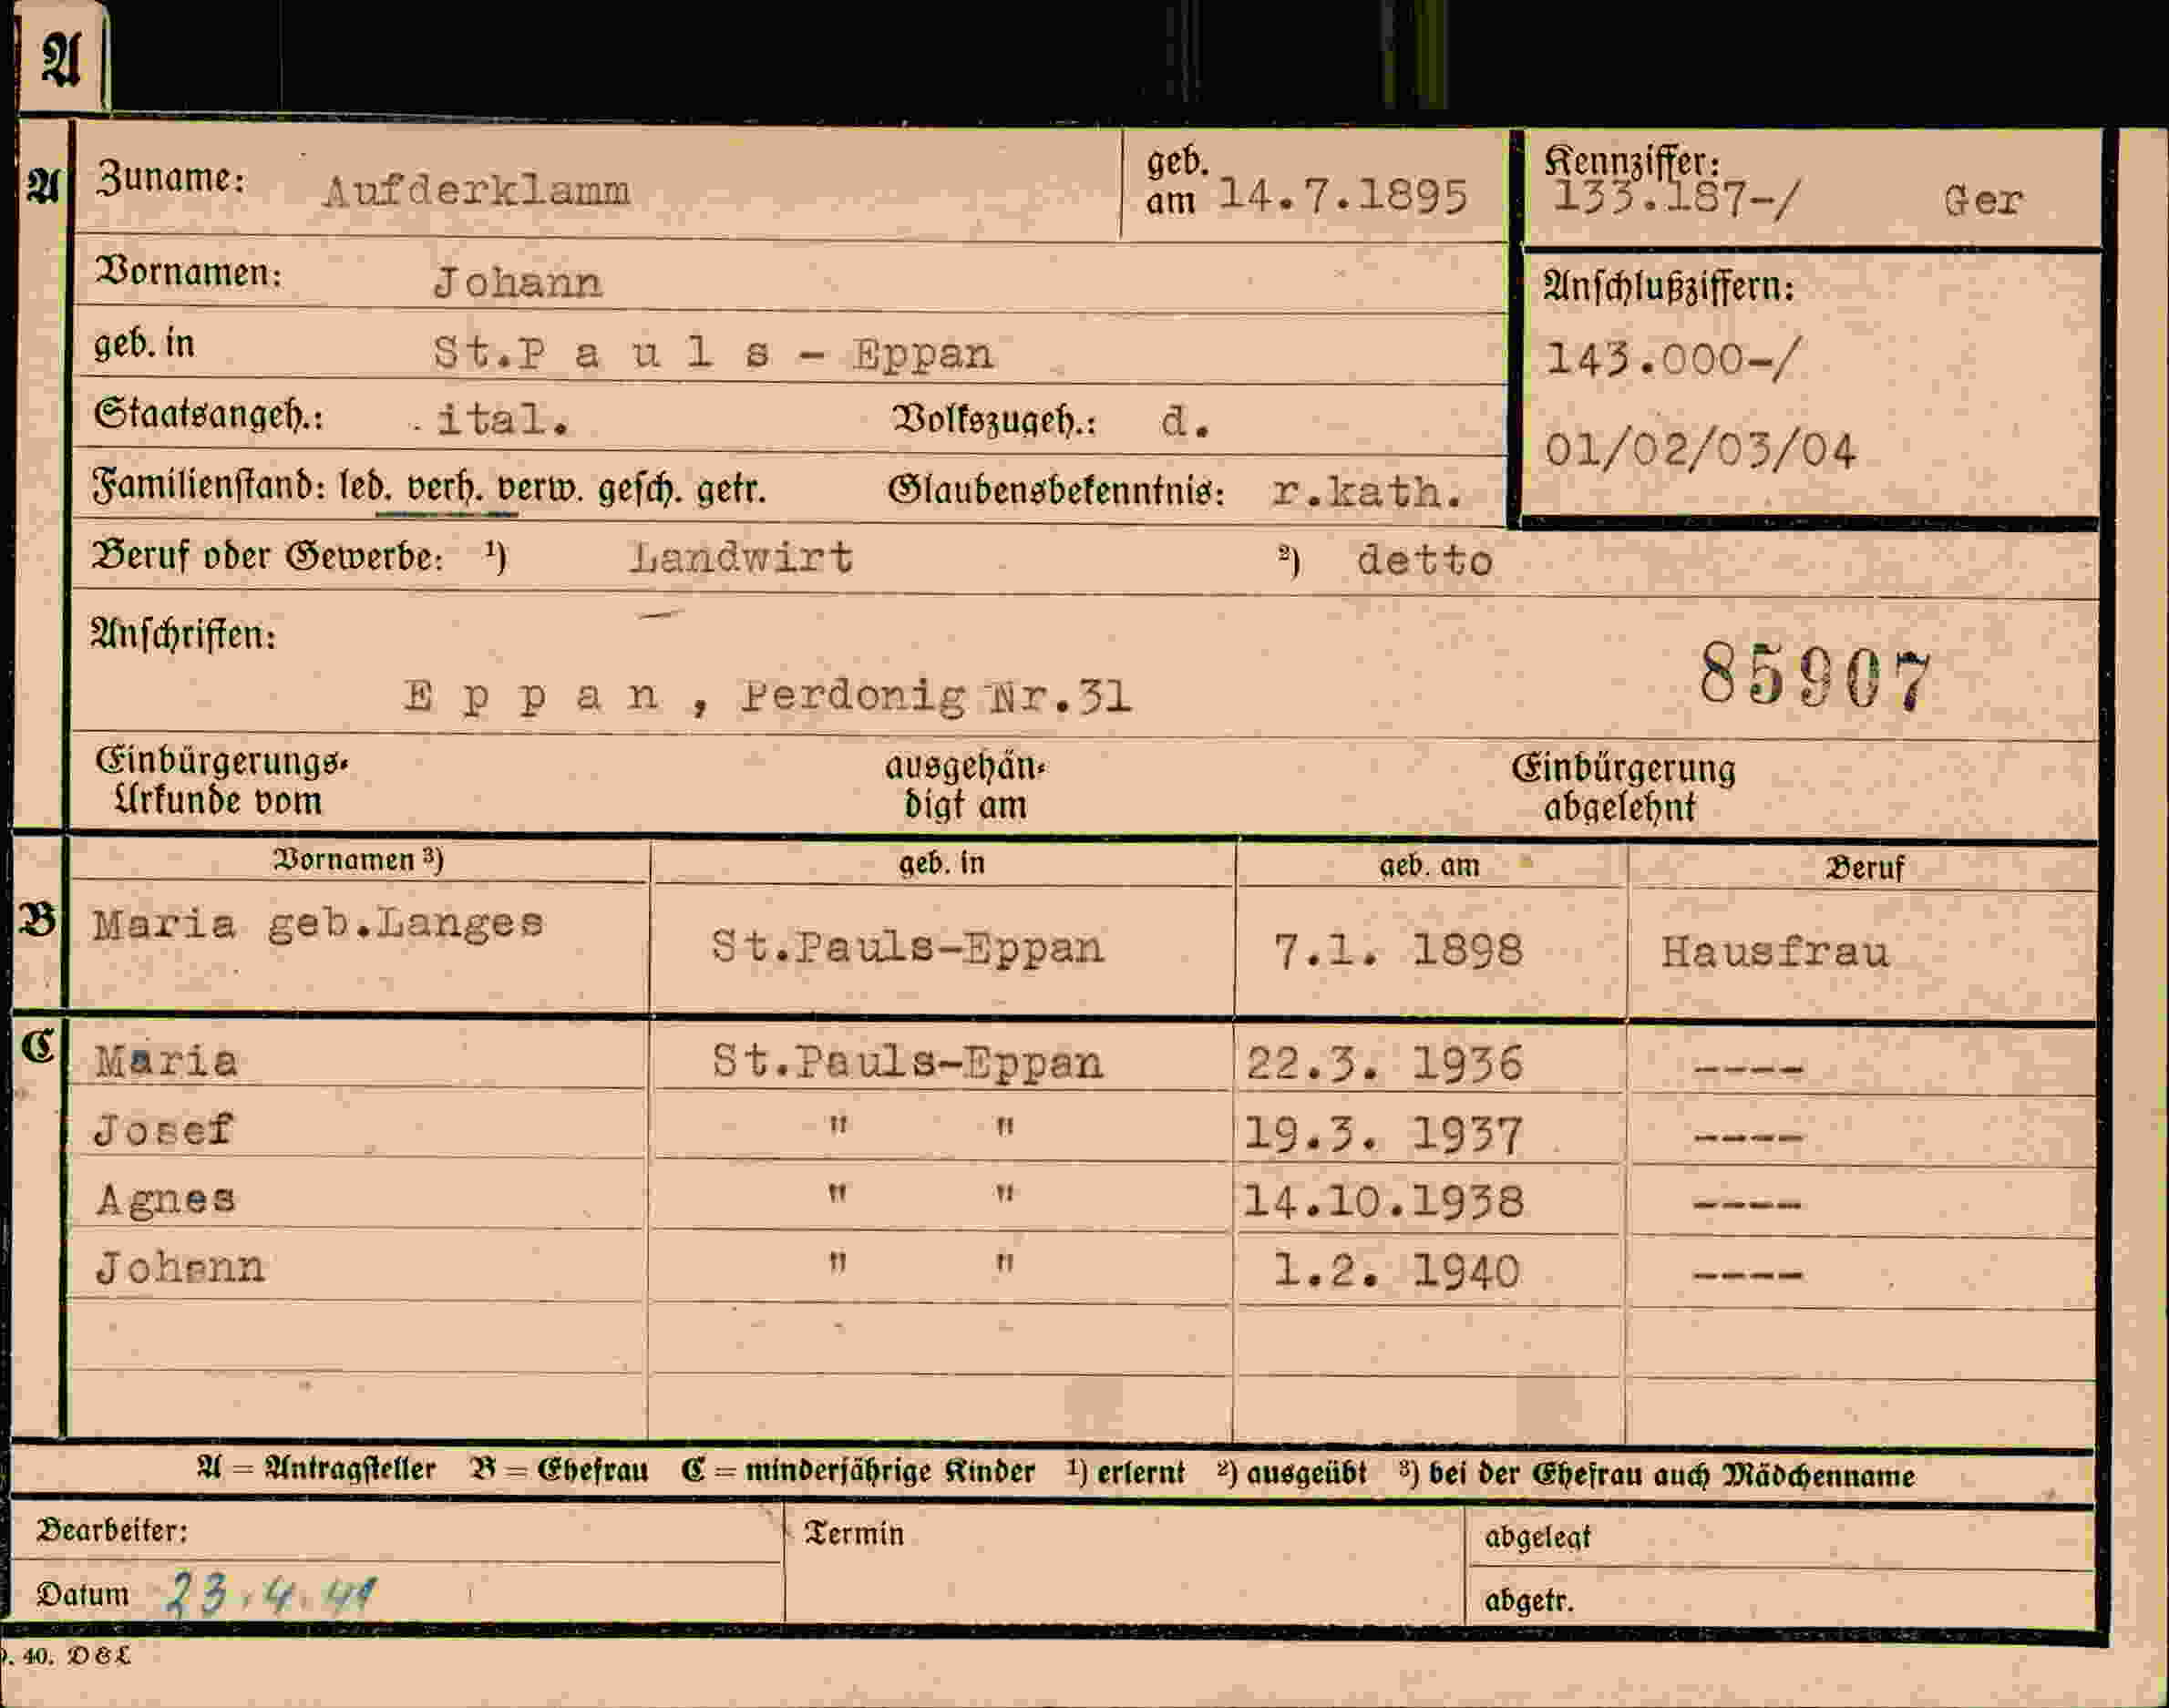 A
A Zuname: Aufderklamm geb. am 14.7.1895 Kennziffer: 133.187-/ Ger
Vornamen: Johann
Anschlußziffern:
geb. in St.P a u l s - Eppan
143.000-/
Staatsangeh.: ital. Volkszugeh.: d.
01/02/03/04
Familienstand: led. verh. verw. gesch. getr. Glaubensbekenntnis: r.kath.
Beruf oder Gewerbe: 1) Landwirt 2) detto
Anschriften:
E p p a n , Perdonig Nr.31
85907
Einbürgerungs- ausgehän- Einbürgerung
Urkunde vom digt am abgelehnt
Vornamen 3) geb. in geb. am Beruf
B Maria geb.Langes St.Pauls-Eppan 7.1. 1898 Hausfrau
C Maria St.Pauls-Eppan 22.3. 1936 ----
Josef " " 19.3. 1937 ----
Agnes " " 14.10.1938 ----
Johann " " 1.2. 1940 ----
A = Antragsteller B = Ehefrau C = minderjährige Kinder 1) erlernt 2) ausgeübt 3) bei der Ehefrau auch Mädchenname
Bearbeiter: Termin abgelegt
Datum 23.4.41 abgetr.
. 40. D&L